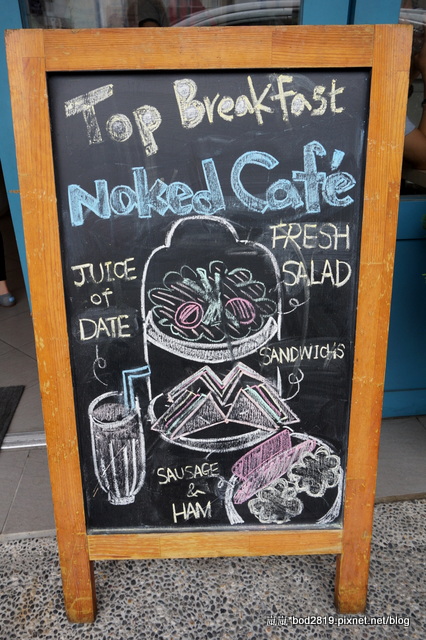 Top Breakfast
Noked Café
FRESH
SALAD
JUICE
of
DATE
SANDWICHS
SAUSAGE
&
HAM
bod2819.pixnet.net/blog